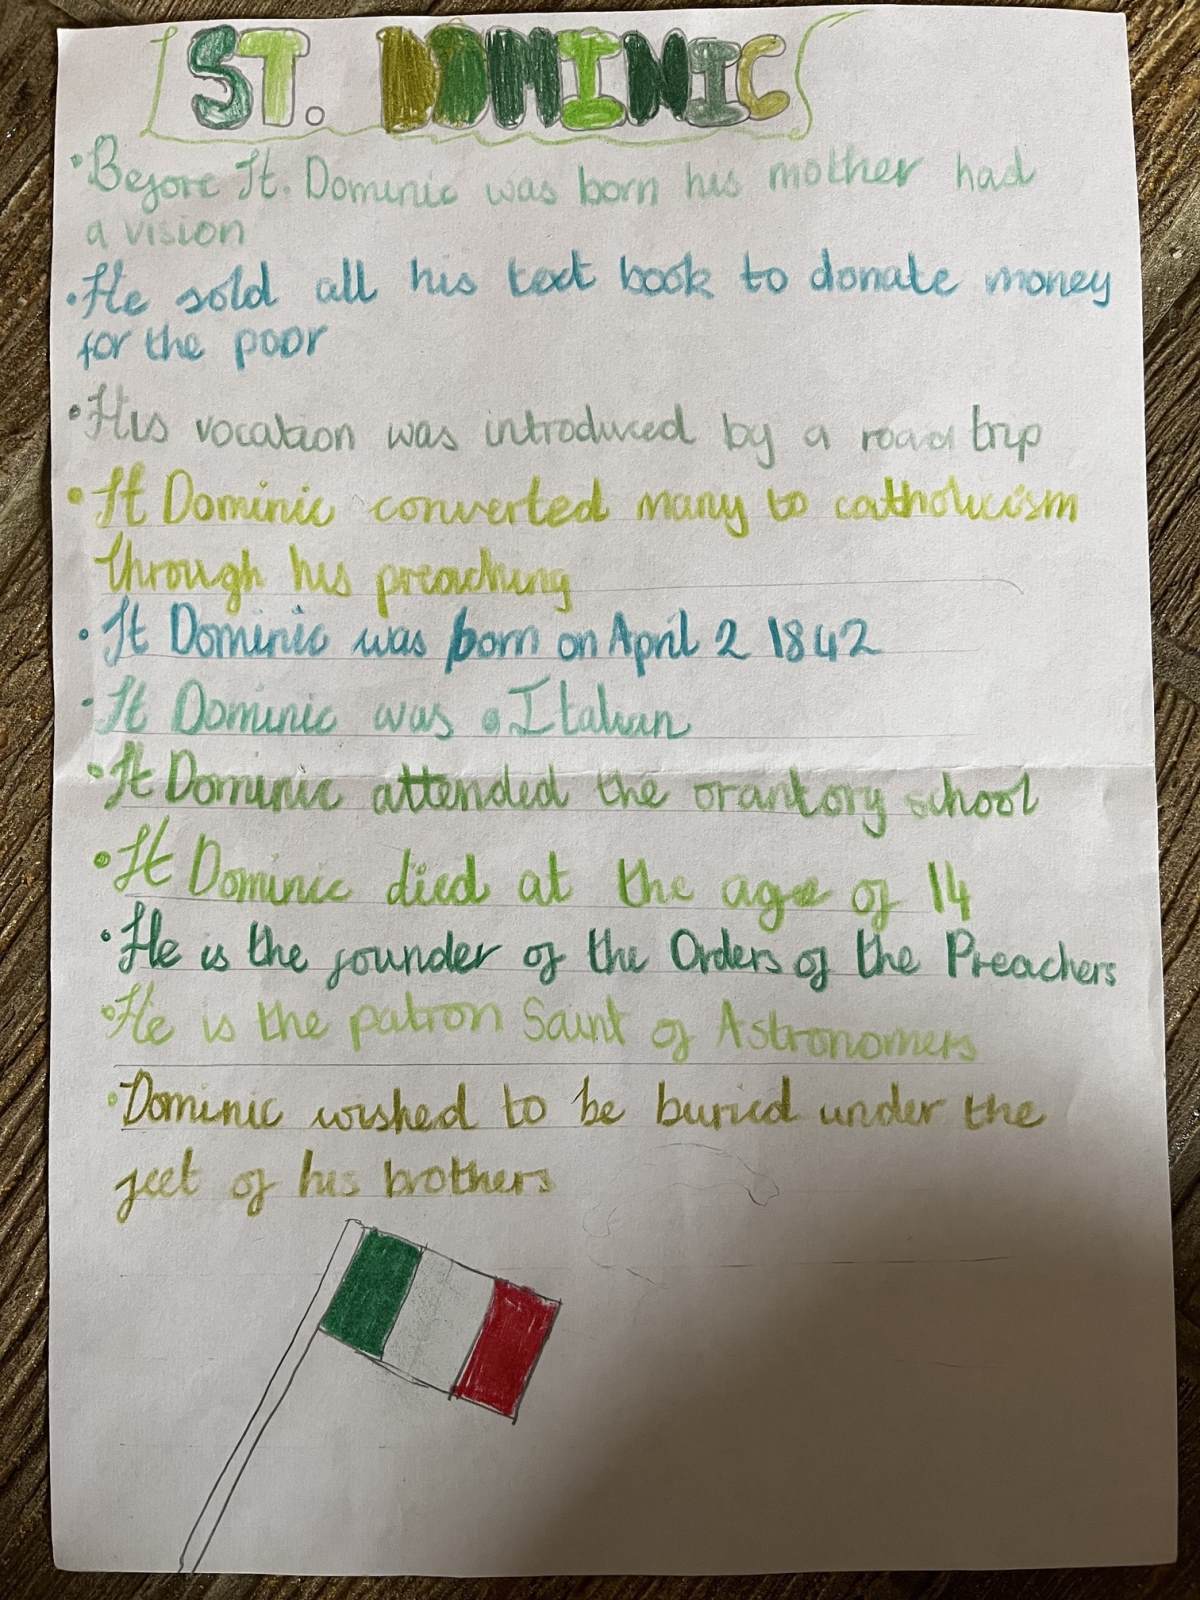 ST. DOMINIC
• Before St. Dominic was born his mother had
a vision
• He sold all his text book to donate money
for the poor
• His vocation was introduced by a road trip
• St Dominic converted many to catholicism
through his preaching
• St Dominic was born on April 2 1842
• St Dominic was Italian
• St Dominic attended the orantory school
• St Dominic died at the age of 14
• He is the founder of the Orders of the Preachers
• He is the patron Saint of Astronomers
• Dominic wished to be buried under the
feet of his brothers